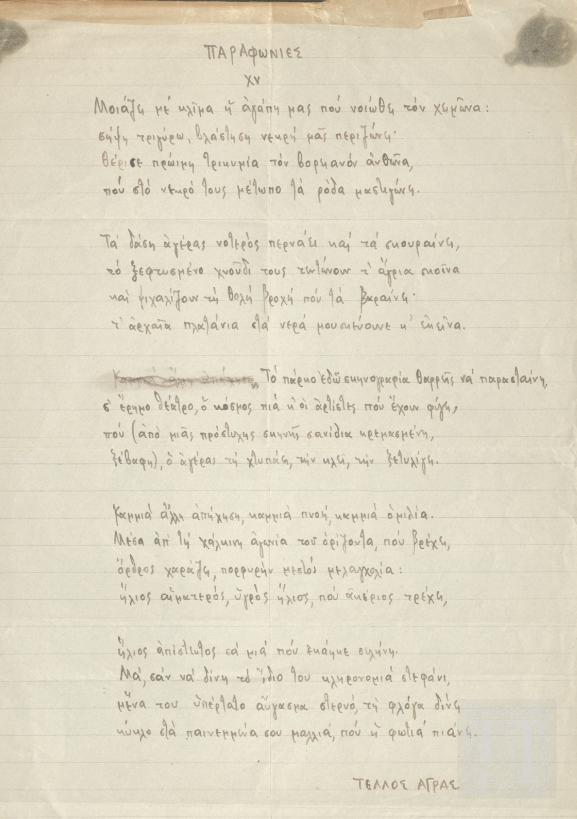 ΠΑΡΑΦΩΝΙΕΣ
XV
Μοιάζει μέ κλῖμα ἡ ἀγάπη μας πού νοιώθει τόν χειμῶνα:
σήψη τριγύρω, βλάστηση νεκρή μᾶς περιζώνει·
θέρισε πρώιμη τρικυμία τόν βορεινόν ἀνθῶνα,
πού στό νεκρό τους μέτωπο τά ρόδα μαστιγώνει.
Τά δάση ἀγέρας νοτερός περνάει καί τά σκουραίνει,
τό ξεφτισμένο χνοῦδι τους τινάζουν τ' ἄγρια σχοῖνα
καί ψιχαλίζουν τή θολή βροχή πού τά βαραίνει·
τ' ἀρχαῖα πλατάνια στά νερά μουσκεύουνε κ' ἐκεῖνα.
Τό πάρκο ἐδῶ σκηνογραφία θαρρεῖς νά παρασταίνη,
σ' ἔρημο θέατρο, ὁ κόσμος πιά κ' οἱ ἀρτίστες πού ἔχουν φύγει,
πού (ἀπό μιᾶς πρόστυχης σκηνῆς σανίδια κρεμασμένη,
ξέβαφη), ὁ ἀγέρας τή χτυπάει, τήν κλεῖ, τήν ξετυλίγει.
Καμμιά ἄλλη ἀπήχηση, καμμιά πνοή, καμμιά ὁμιλία.
Μέσα ἀπ' τή χάλκινη ἀγωνία τοῦ ὁρίζοντα, πού βρέχει,
ὄρθρος χαράζει, πορφυρήν μεστός μελαγχολία:
ἥλιος αἱματερός, ὑγρός ἥλιος, πού ἀκέριος τρέχει,
ἥλιος ἀπίστωτος σά μιά πού ἐκάηκε σελήνη.
Μά, σάν νά δίνη τό ἴδιο του κληρονομιά στεφάνι,
μένα του ὑπέρτατο αὔγασμα στερνό, τή φλόγα δίνει
κύκλο στά παινεμμένα σου μαλλιά, πού ἡ φωτιά πιάνει.
ΤΕΛΛΟΣ ΑΓΡΑΣ